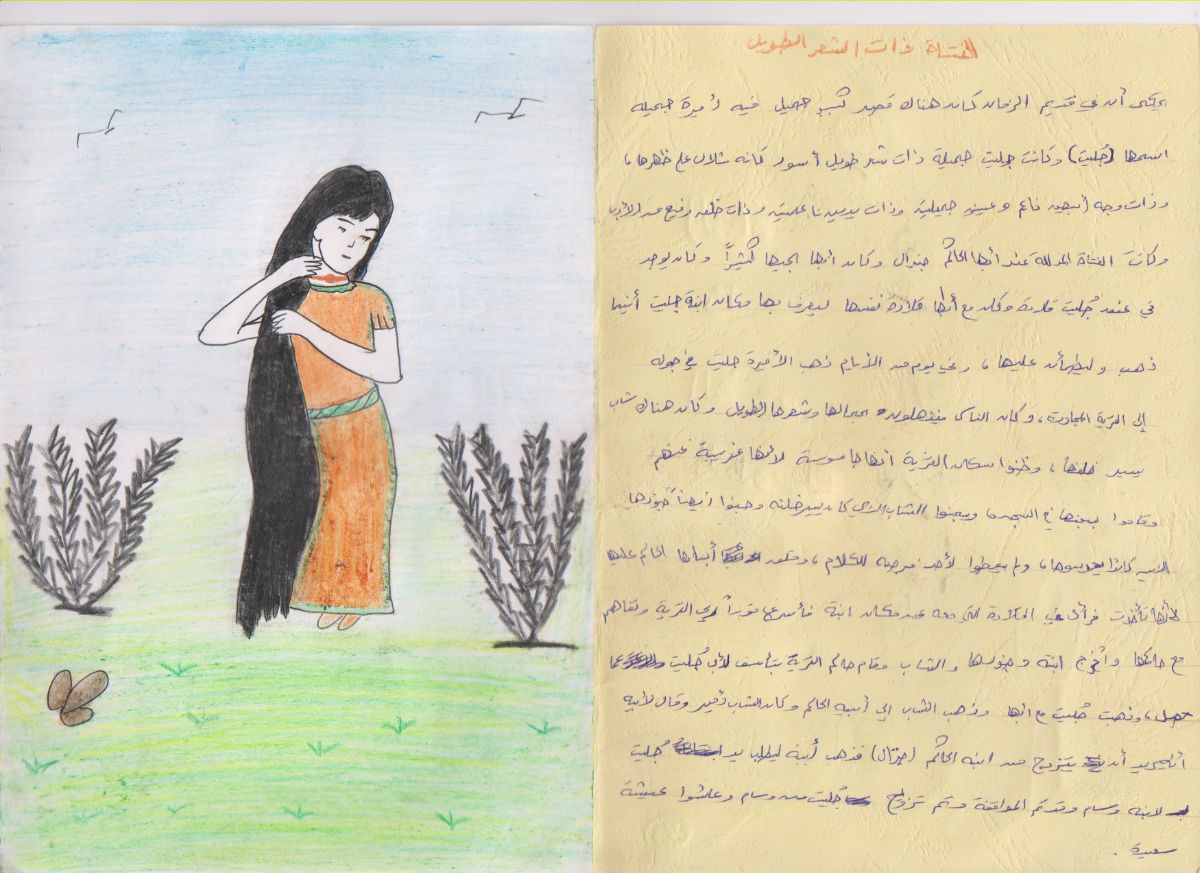 الفتاة ذات الشعر الطويل
يحكى أن في قديم الزمان كان هناك قصر كبير جميل فيه أميرة جميلة
اسمها (جُليت) وكانت جليت جميلة ذات شعر طويل أسود كأنه شلال على ظهرها،
وذات وجه أبيض ناعم وعينين جميلتين وذات يدين ناعمتين وذات خلق رفيع من الأدب
وكانت الفتاة المدللة عند أبها الحاكم جنرال وكان أبها يحبها كثيراً وكان يوجد
في عنقد جُليت قلادة وكان مع أبها قلادة نفسها ليعرف بها مكان ابنة جليت أينما
ذهب وليطمأن عليها، وفي يوم من الأيام ذهب الأميرة جليت في جولة
إلى القرية المجاورة، وكان الناس ينذهلون بجمالها وشعرها الطويل وكان هناك شاب
يسير خلفها، وظنوا سكان القرية أنها جاسوسة لأنها غريبة عنهم
وقاموا بسجنها في السجن وسجنوا الشاب الذي كان يسير خلفه وحبنوا أيضاً جنودها
الذين كانوا، ولم يعطوا لأحد فرصة للكلام، أباها الحاكم عليها
لأنها تأخرت فرأى في القلادة التي معه عن مكان ابنة فأسرع فوراً إلى القرية وتفاهم
مع حاكمها وأخرج ابنته وجنودها والشاب وقام حاكم القرية بتأسف لأبي جُليت عما
حصل، وذهبت جُليت مع أبها وذهب الشاب إلى أبيه الحاكم وكان الشاب أمير وقال لأبيه
أنه يريد أن يتزوج من ابنة الحاكم (جنرال) فذهب أبيه ليطلب يد جُليت
لابنه وسام وقد تم الموافقة وتم تزوج جُليت من وسام وعاشوا عيشة
سعيدة.